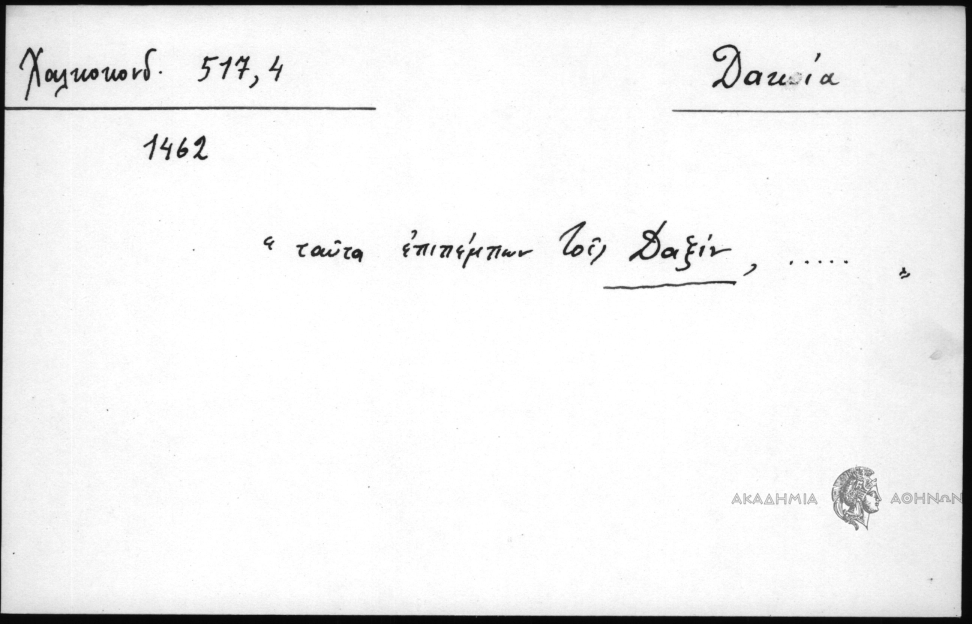 Χαλκοκονδ. 517,4
Δακία
1462
“ ταῦτα ἐπιπέμπων τοῖς Δαξίν, ..... „
ΑΚΑΔΗΜΙΑ ΑΘΗΝΩΝ